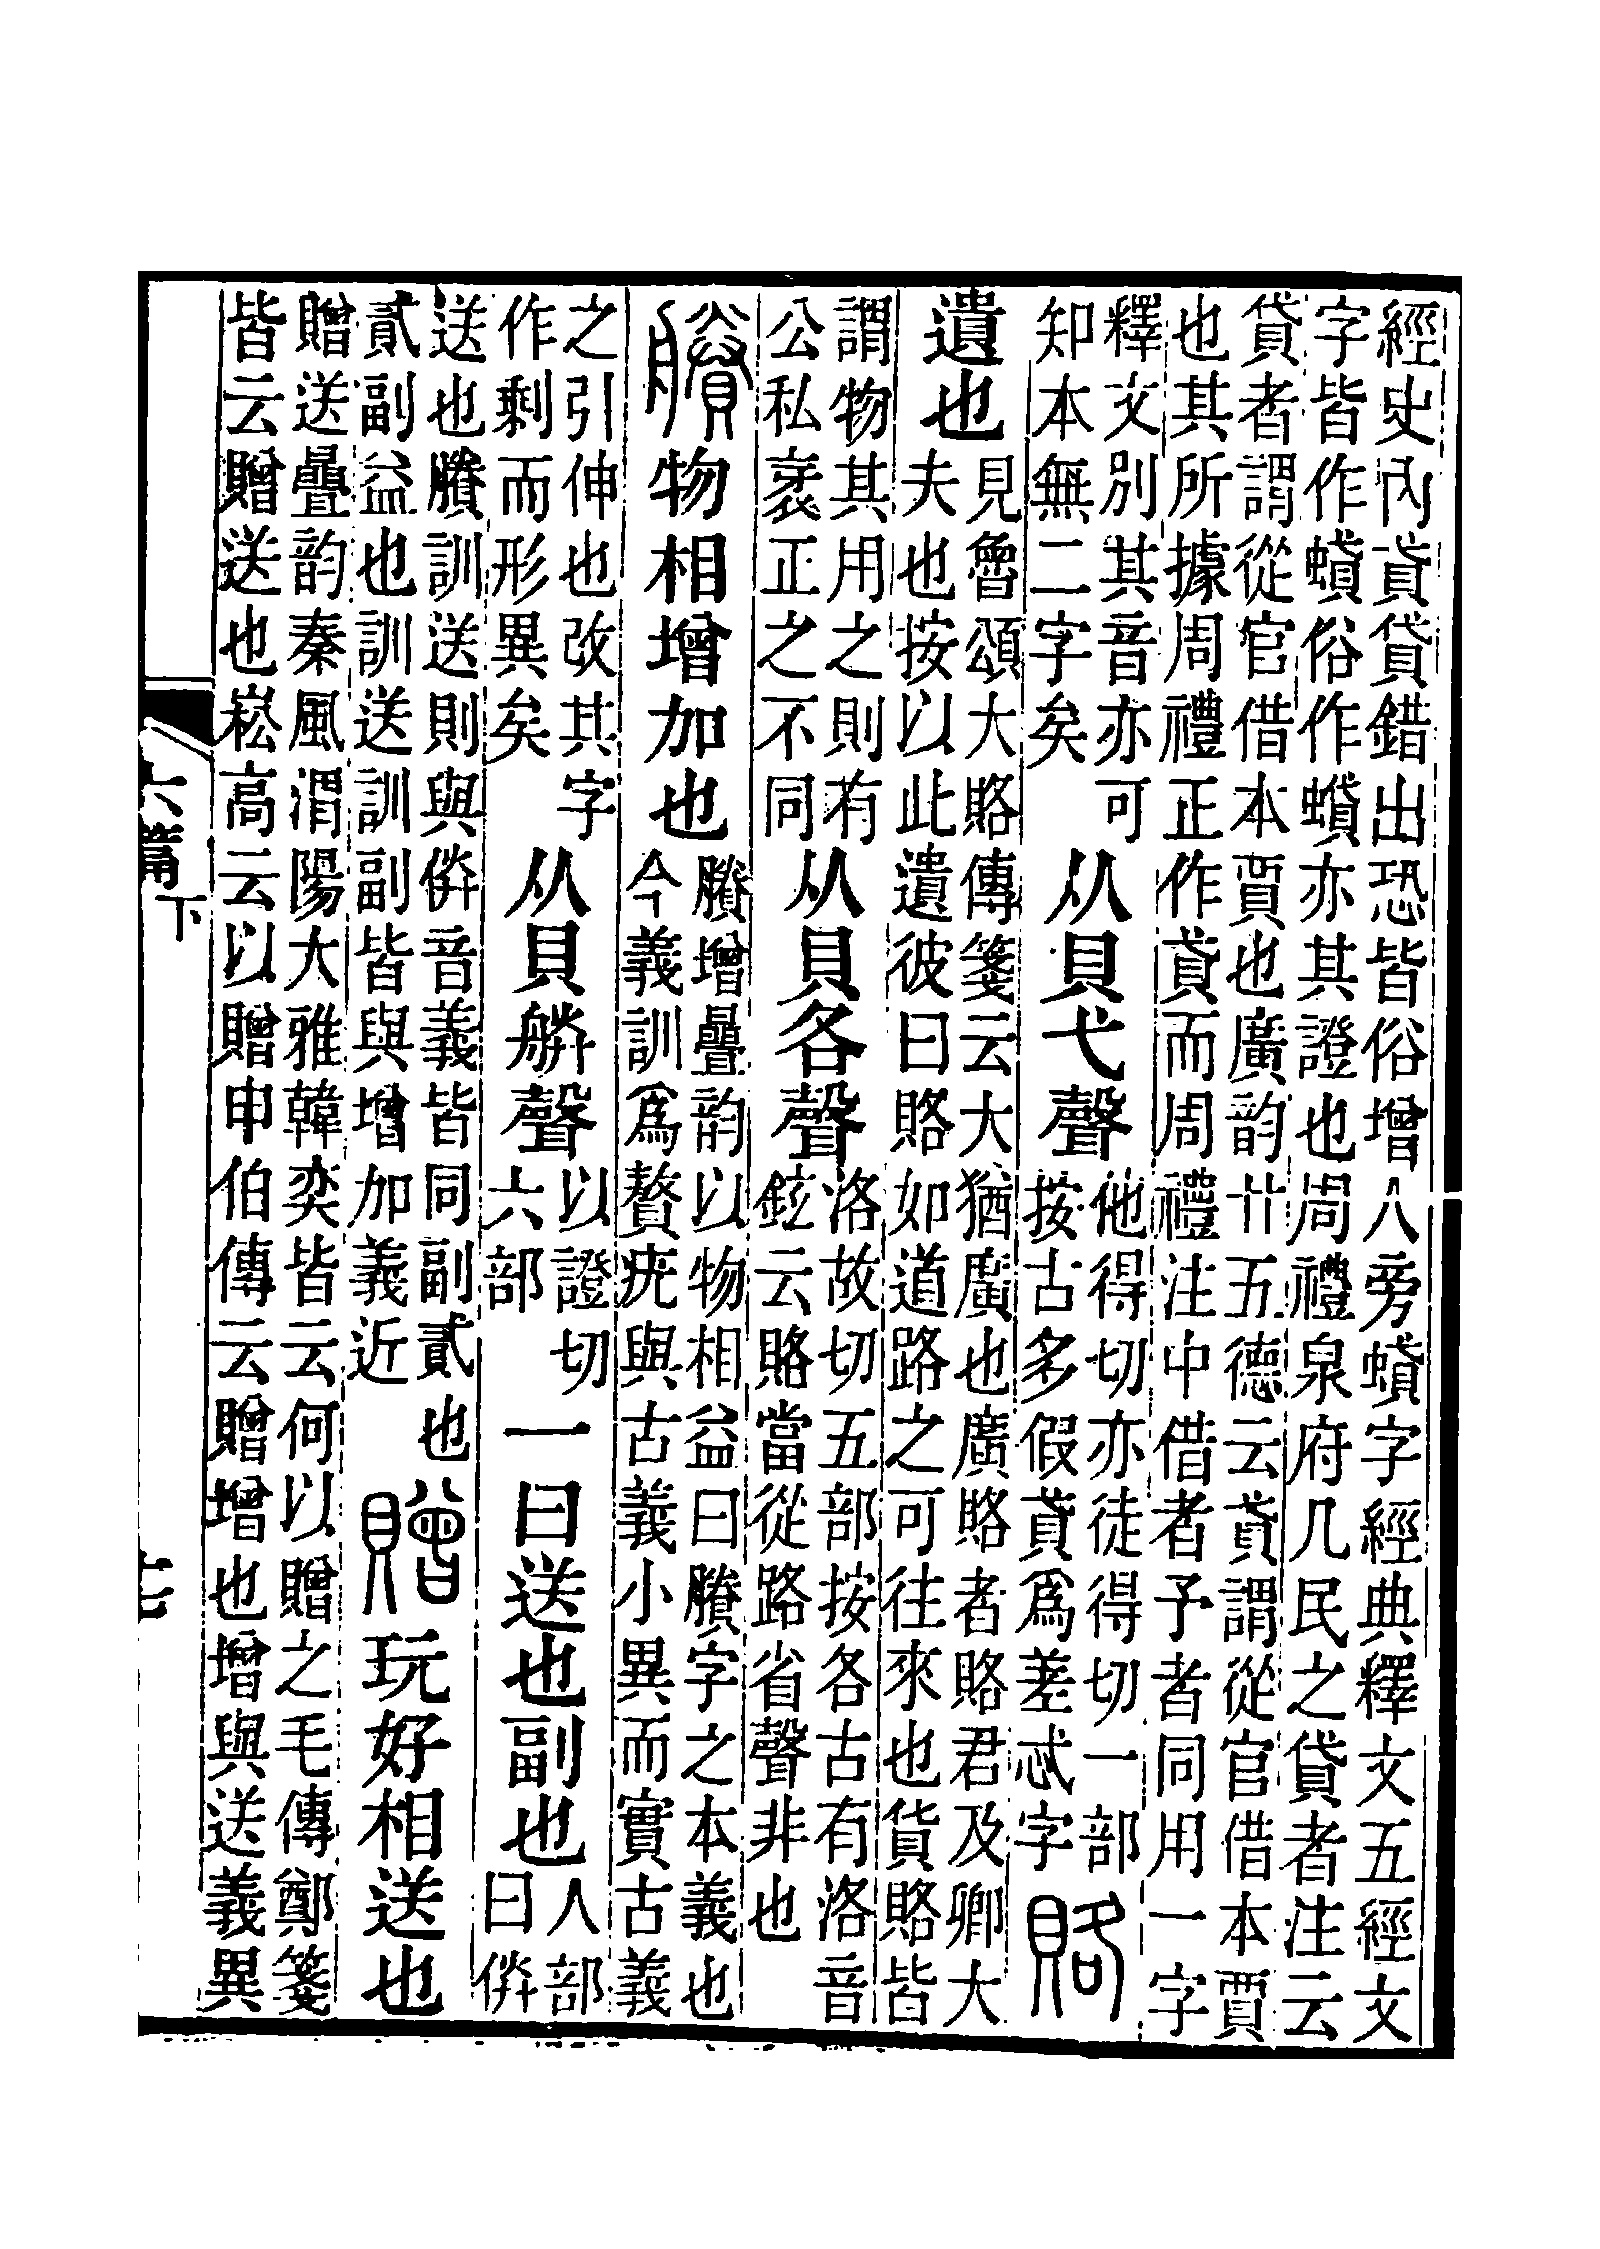 經史內貣貸錯出恐皆俗增人旁蟘字經典釋文五經文
字皆作蟘俗作蟘亦其證也周禮泉府凡民之貸者注云
貸者謂從官借本賈也廣韵廿五德云貣謂從官借本賈
也其所據周禮正作貣而周禮注中借者予者同用一字
釋文別其音亦可
知本無二字矣
从貝弋聲
他得切亦徒得切一部
按古多假貣爲差忒字
賂
遺也
見魯頌大賂傳箋云大猶廣也廣賂者賂君及卿大
夫也按以此遺彼曰賂如道路之可往來也貨賂皆
謂物其用之則有
公私衺正之不同
从貝各聲
洛故切五部按各古有洛音
鉉云賂當從路省聲非也
賸物相增加也
賸增曡韵以物相益曰賸字之本義也
今義訓爲贅疣與古義小異而實古義
之引伸也改其字
作剩而形異矣
从貝朕聲
以證切
六部
一曰送也副也
人部
曰㑞
送也賸訓送則與㑞音義皆同副貳也
貳副益也訓送訓副皆與增加義近
贈玩好相送也
贈送曡韵秦風渭陽大雅韓奕皆云何以贈之毛傳鄭箋
皆云贈送也崧高云以贈申伯傳云贈增也增與送義異
六篇下